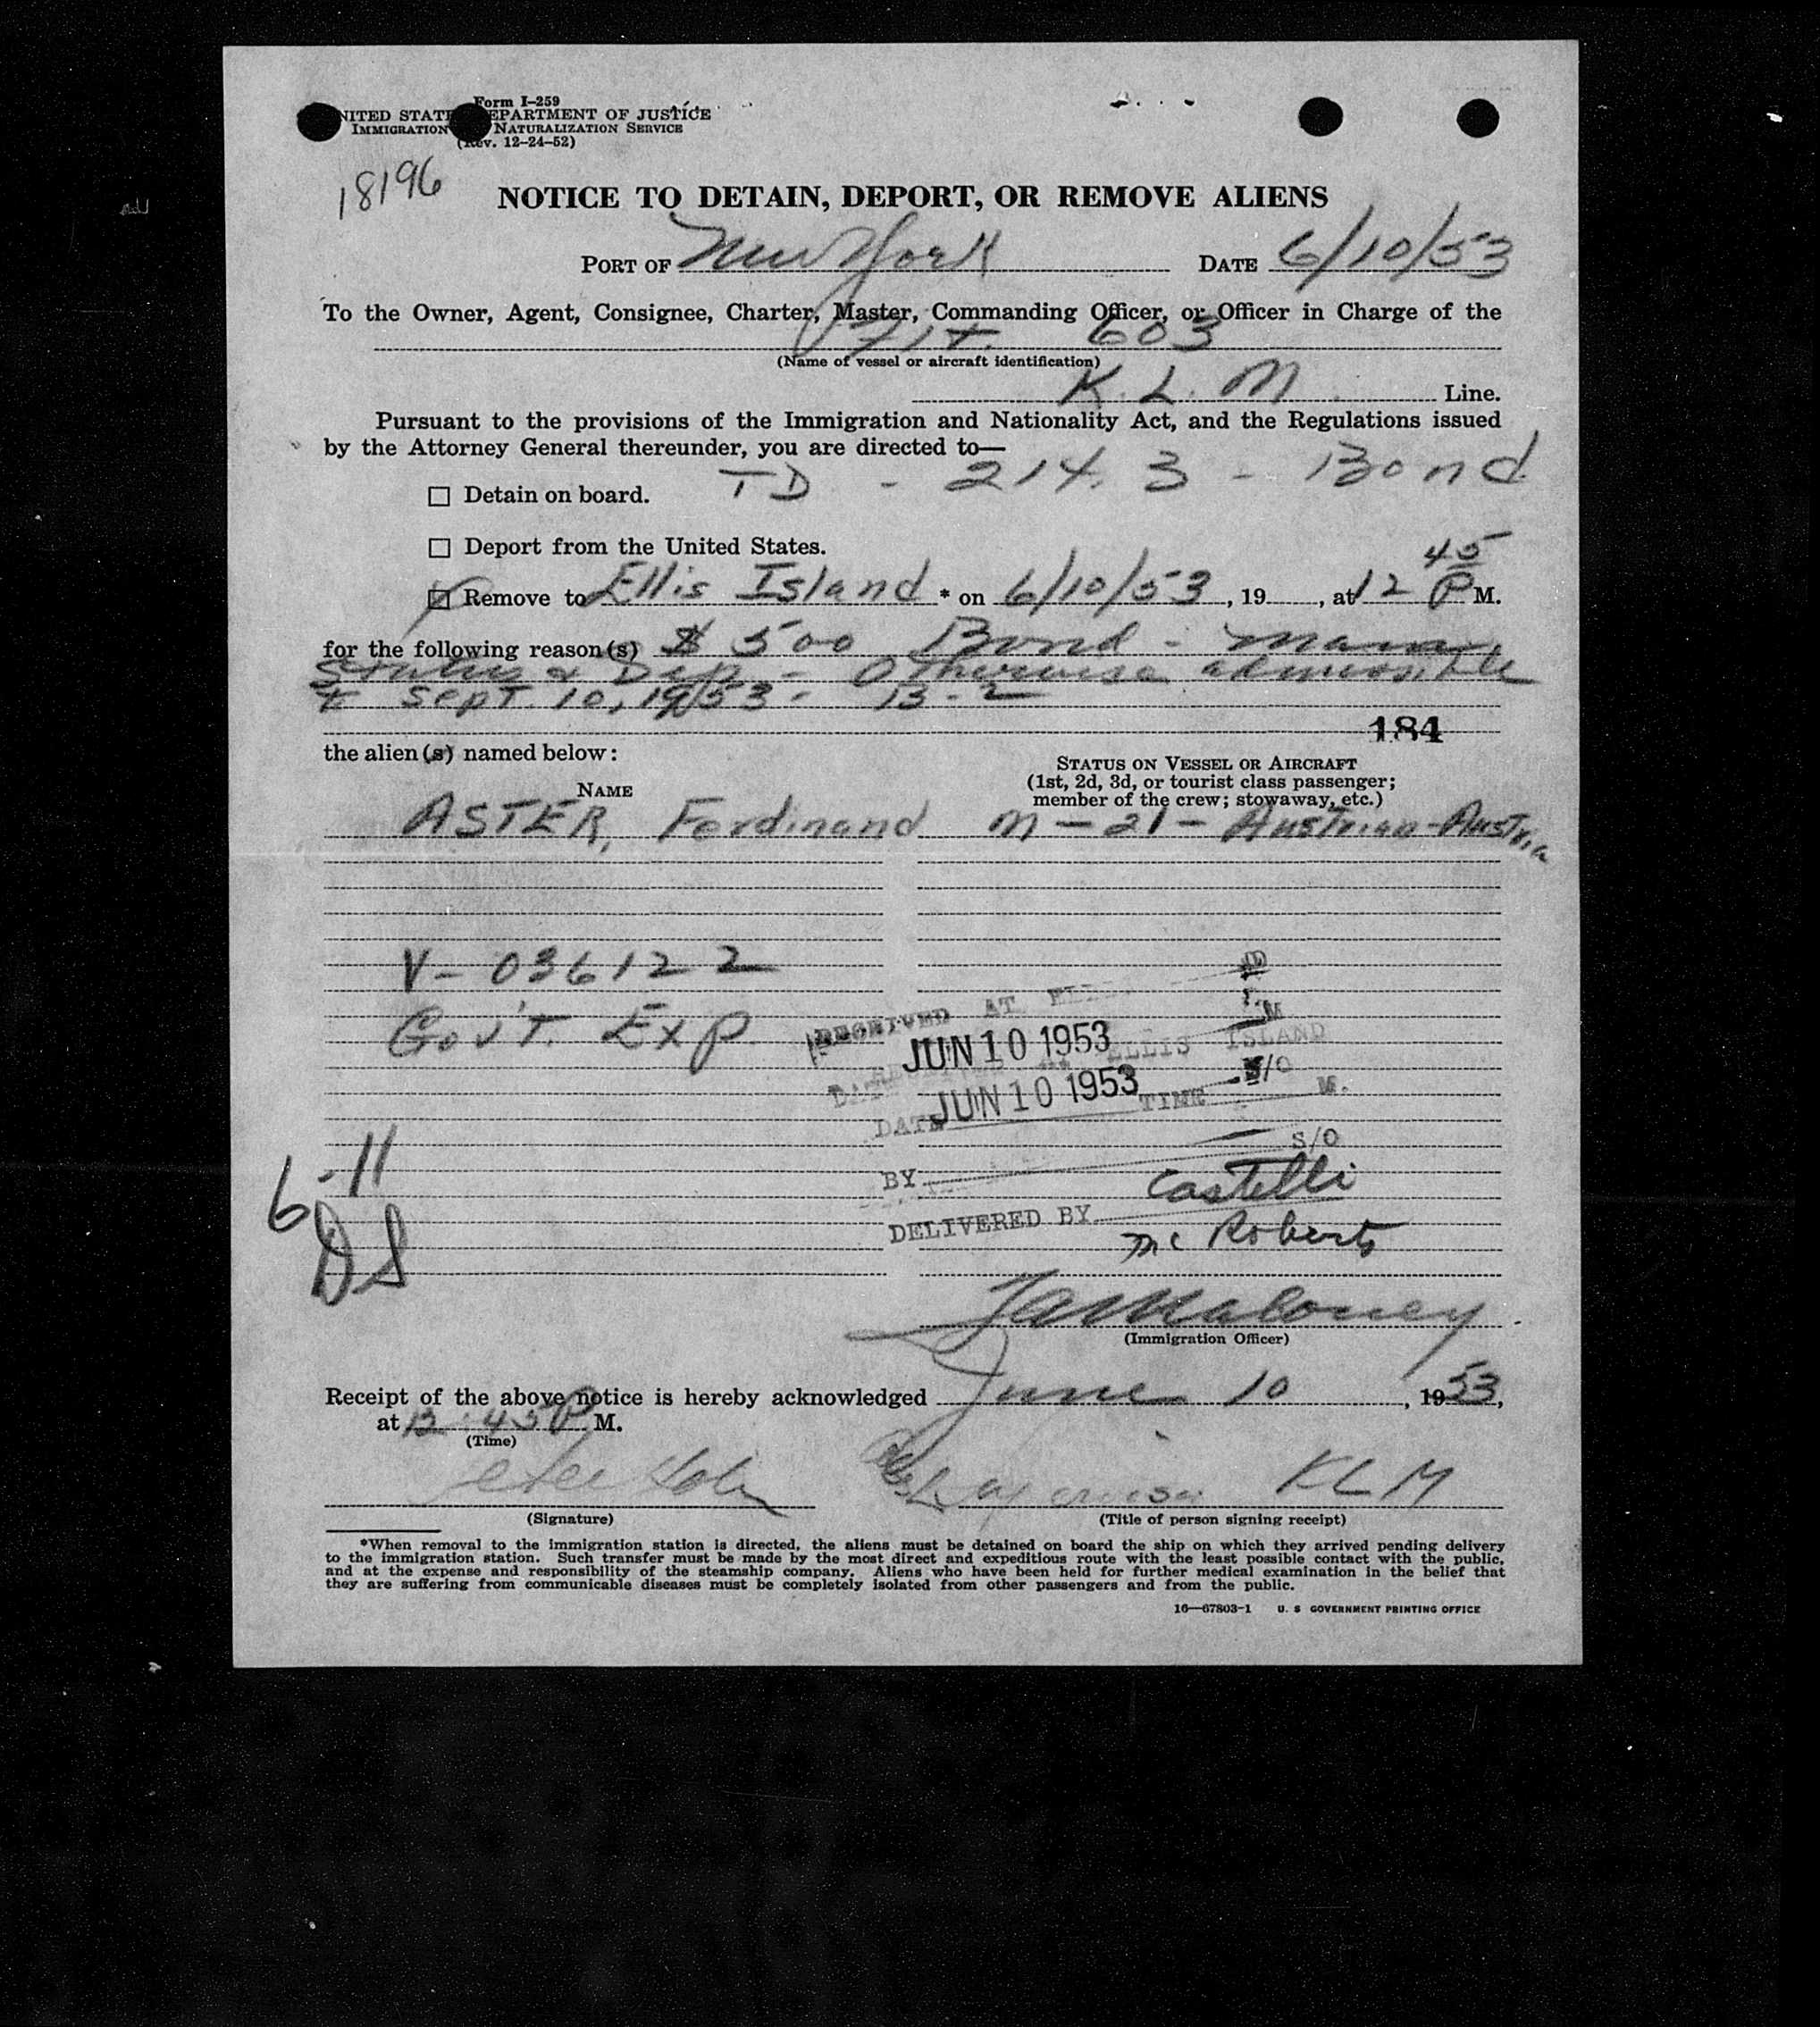 Form I-259
UNITED STATES DEPARTMENT OF JUSTICE
IMMIGRATION NATURALIZATION SERVICE
(Rev. 12-24-52)
18196
NOTICE TO DETAIN, DEPORT, OR REMOVE ALIENS
PORT OF New York DATE 6/10/53
To the Owner, Agent, Consignee, Charter, Master, Commanding Officer, or Officer in Charge of the
Flt. 603
(Name of vessel or aircraft identification)
K. L. M. Line.
Pursuant to the provisions of the Immigration and Nationality Act, and the Regulations issued
by the Attorney General thereunder, you are directed to—
TD - 214.3 - Bond
☐ Detain on board.
☐ Deport from the United States.
☒ Remove to Ellis Island * on 6/10/53, 19, at 12 45 P M.
for the following reason(s) $500 Bond - Main.
Status & Dep - Otherwise admissible
t Sept. 10, 1953 - B-2
184
the alien(s) named below:
NAME
STATUS ON VESSEL OR AIRCRAFT
(1st, 2d, 3d, or tourist class passenger;
member of the crew; stowaway, etc.)
ASTER, Ferdinand M - 21 - Austrian - Austria
V- 036122
Gov't. Exp.
RECEIVED AT
JUN 10 1953
ELLIS ISLAND
S/O
DATE JUN 10 1953 TIME M.
S/O
6-11
DS
BY Castelli
DELIVERED BY Mc Roberts
Maloney
(Immigration Officer)
Receipt of the above notice is hereby acknowledged June 10, 1953,
at 12:45 P M.
(Time)
KLM
(Signature)
(Title of person signing receipt)
*When removal to the immigration station is directed, the aliens must be detained on board the ship on which they arrived pending delivery
to the immigration station. Such transfer must be made by the most direct and expeditious route with the least possible contact with the public,
and at the expense and responsibility of the steamship company. Aliens who have been held for further medical examination in the belief that
they are suffering from communicable diseases must be completely isolated from other passengers and from the public.
16—67803-1 U. S GOVERNMENT PRINTING OFFICE